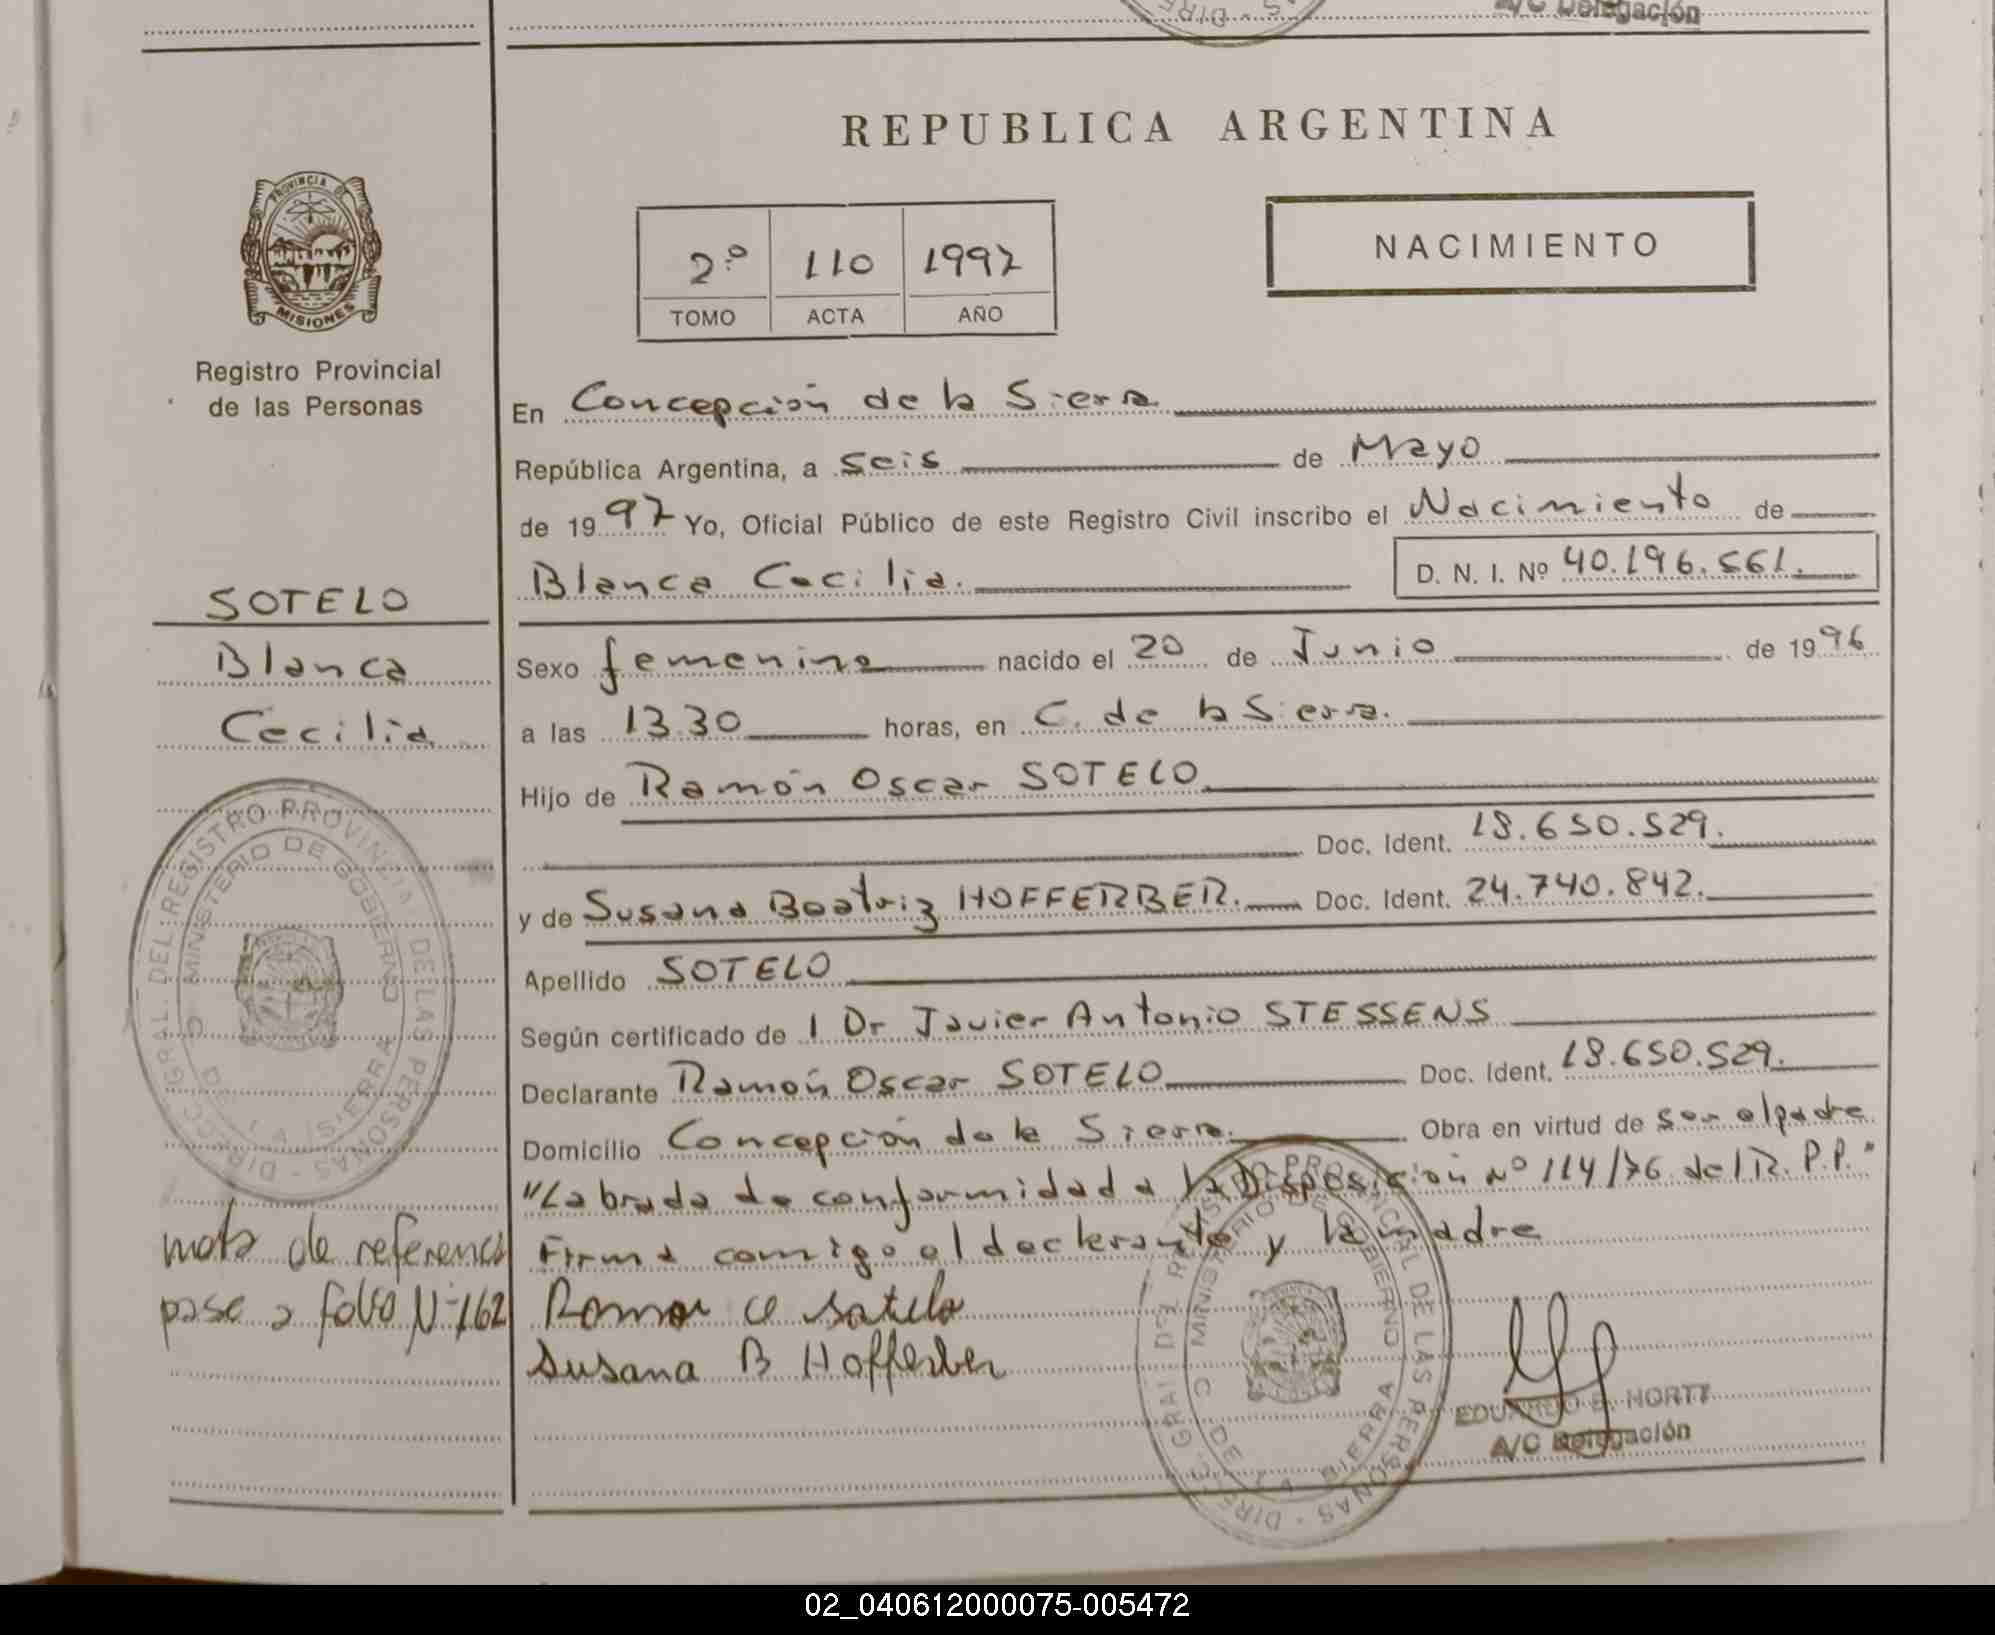 A/C Delegación
REPUBLICA ARGENTINA
PROVINCIA DE
MISIONES
Registro Provincial
de las Personas
2º 110 1997
TOMO ACTA AÑO
NACIMIENTO
En Concepción de la Sierra
República Argentina, a seis de Mayo
de 1997 Yo, Oficial Público de este Registro Civil inscribo el Nacimiento de
Blanca Cecilia. D. N. I. Nº 40.196.561.
SOTELO
Blanca
Cecilia
Sexo femenino nacido el 20 de Junio de 1996
a las 13.30 horas, en C. de la Sierra.
Hijo de Ramón Oscar SOTELO
Doc. Ident. 18.650.529.
y de Susana Beatriz HOFFERBER. Doc. Ident. 24.740.842.
Apellido SOTELO
Según certificado de 1 Dr Javier Antonio STESSENS
Declarante Ramón Oscar SOTELO Doc. Ident. 18.650.529.
Domicilio Concepción de la Sierra. Obra en virtud de ser el padre
"Labrada de conformidad a la Disposición Nº 114/76 del R. P.P."
Firma conmigo el declarante y la madre
Ramon O Sotelo
Susana B Hofferber
nota de referencia
pase a folio Nº 162
DIREC. GRAL. DEL REGISTRO PROVINCIAL DE LAS PERSONAS
MINISTERIO DE GOBIERNO
C. DE LA SIERRA
DIREC. GRAL. DEL REGISTRO PROVINCIAL DE LAS PERSONAS
MINISTERIO DE GOBIERNO
C. DE LA SIERRA
EDUARDO E. HORTT
A/C Delegación
02_040612000075-005472